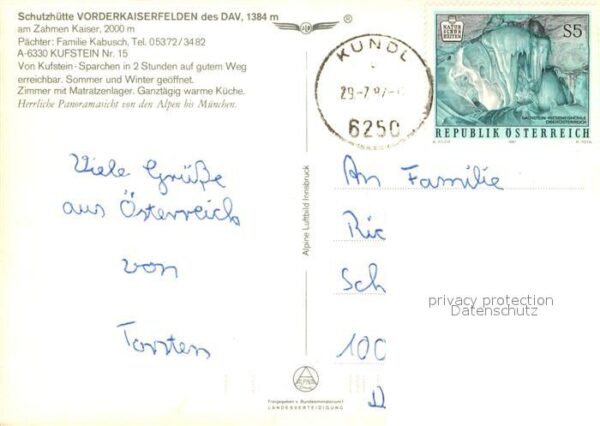 Schutzhütte VORDERKAISERFELDEN des DAV, 1384 m
am Zahmen Kaiser, 2000 m
Pächter: Familie Kabusch, Tel. 05372/3482
A-6330 KUFSTEIN Nr. 15
Von Kufstein-Sparchen in 2 Stunden auf gutem Weg
erreichbar. Sommer und Winter geöffnet.
Zimmer mit Matratzenlager. Ganztägig warme Küche.
Herrliche Panoramasicht von den Alpen bis München.
®
KUNDL
29.-7.87-
6250
NATUR
SCHÖN
HEITEN
S5
DACHSTEIN-RIESENEISHÖHLE
OBERÖSTERREICH
REPUBLIK ÖSTERREICH
1987
Viele Grüße
aus Österreich
von
Torsten
Alpine Luftbild Innsbruck
Freigegeben v. Bundesministerium f.
LANDESVERTEIDIGUNG
An Familie
Ric
Sch
100
D
privacy protection
Datenschutz